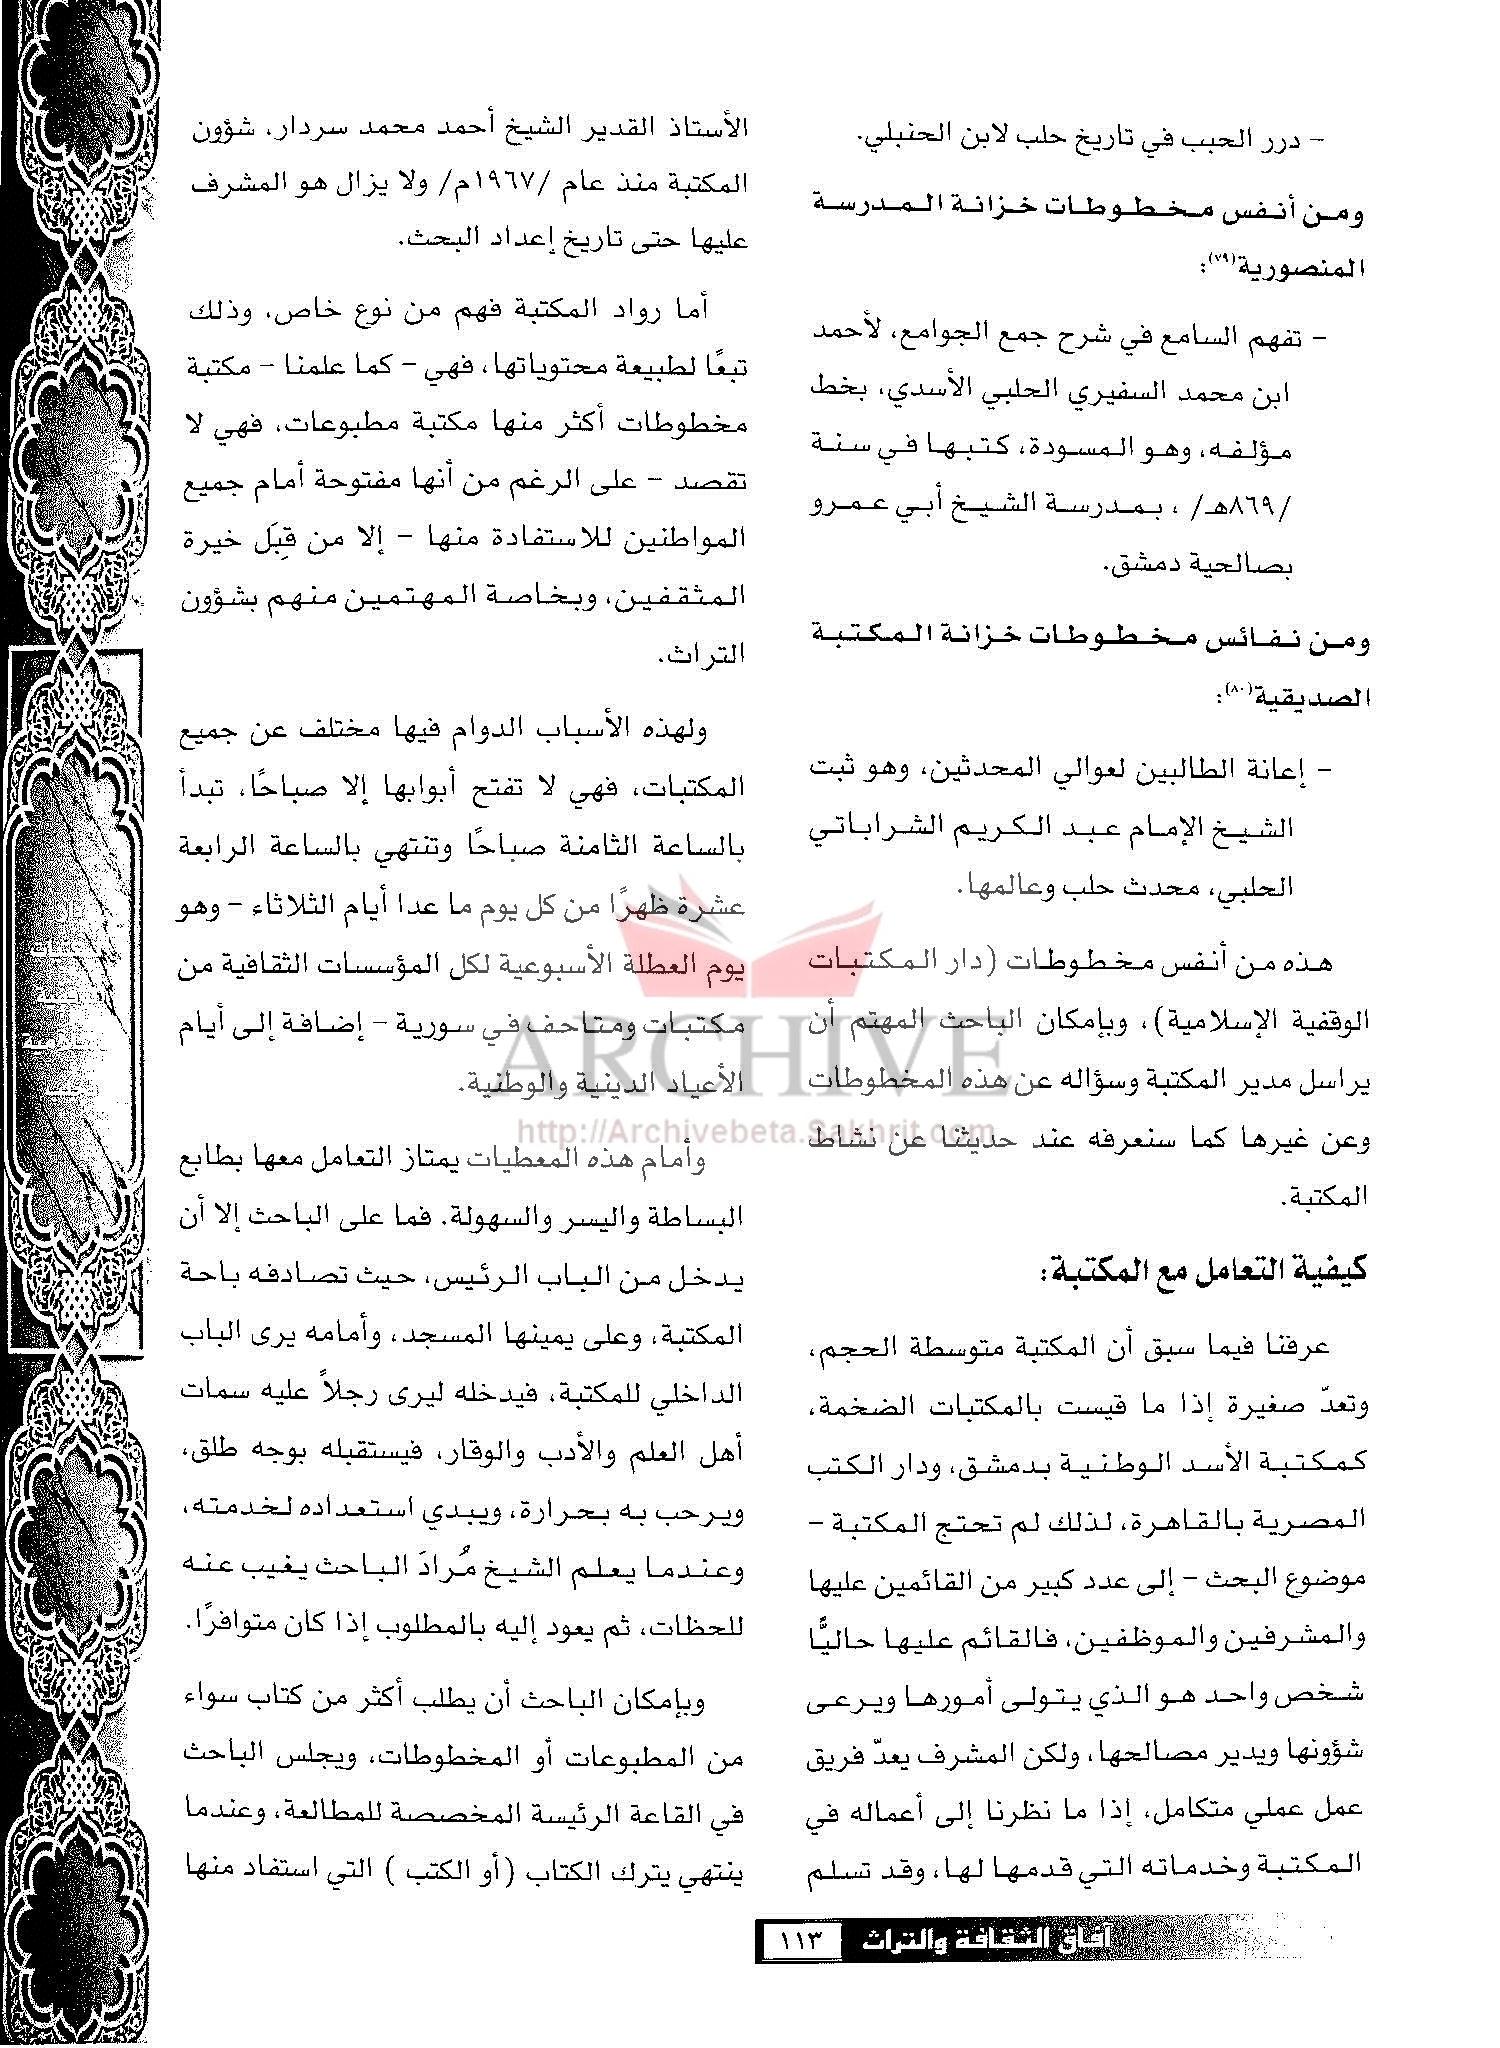 - درر الحبب في تاريخ حلب لابن الحنبلي.
ومن أنفس مخطوطات خزانة المدرسة
المنصورية(٧٩):
- تفهم السامع في شرح جمع الجوامع، لأحمد
ابن محمد السفيري الحلبي الأسدي، بخط
مؤلفه، وهو المسودة، كتبها في سنة
/٨٦٩هـ/ ، بمدرسة الشيخ أبي عمرو
بصالحية دمشق.
ومن نفائس مخطوطات خزانة المكتبة
الصديقية(٨٠):
- إعانة الطالبين لعوالي المحدثين، وهو ثبت
الشيخ الإمام عبد الكريم الشراباتي
الحلبي، محدث حلب وعالمها.
هذه من أنفس مخطوطات (دار المكتبات
الوقفية الإسلامية)، وبإمكان الباحث المهتم أن
يراسل مدير المكتبة وسؤاله عن هذه المخطوطات
وعن غيرها كما سنعرفه عند حديثنا عن نشاط
المكتبة.
كيفية التعامل مع المكتبة:
عرفنا فيما سبق أن المكتبة متوسطة الحجم،
وتعدّ صغيرة إذا ما قيست بالمكتبات الضخمة،
كمكتبة الأسد الوطنية بدمشق، ودار الكتب
المصرية بالقاهرة، لذلك لم تحتج المكتبة -
موضوع البحث - إلى عدد كبير من القائمين عليها
والمشرفين والموظفين، فالقائم عليها حاليًّا
شخص واحد هو الذي يتولى أمورها ويرعى
شؤونها ويدير مصالحها، ولكن المشرف يعدّ فريق
عمل عملي متكامل، إذا ما نظرنا إلى أعماله في
المكتبة وخدماته التي قدمها لها، وقد تسلم
الأستاذ القدير الشيخ أحمد محمد سردار، شؤون
المكتبة منذ عام /١٩٦٧م/ ولا يزال هو المشرف
عليها حتى تاريخ إعداد البحث.
أما رواد المكتبة فهم من نوع خاص، وذلك
تبعًا لطبيعة محتوياتها، فهي - كما علمنا - مكتبة
مخطوطات أكثر منها مكتبة مطبوعات، فهي لا
تقصد - على الرغم من أنها مفتوحة أمام جميع
المواطنين للاستفادة منها - إلا من قِبَل خيرة
المثقفين، وبخاصة المهتمين منهم بشؤون
التراث.
ولهذه الأسباب الدوام فيها مختلف عن جميع
المكتبات، فهي لا تفتح أبوابها إلا صباحًا، تبدأ
بالساعة الثامنة صباحًا وتنتهي بالساعة الرابعة
عشرة ظهرًا من كل يوم ما عدا أيام الثلاثاء - وهو
يوم العطلة الأسبوعية لكل المؤسسات الثقافية من
مكتبات ومتاحف في سورية - إضافة إلى أيام
الأعياد الدينية والوطنية.
وأمام هذه المعطيات يمتاز التعامل معها بطابع
البساطة واليسر والسهولة. فما على الباحث إلا أن
يدخل من الباب الرئيس، حيث تصادفه باحة
المكتبة، وعلى يمينها المسجد، وأمامه يرى الباب
الداخلي للمكتبة، فيدخله ليرى رجلاً عليه سمات
أهل العلم والأدب والوقار، فيستقبله بوجه طلق،
ويرحب به بحرارة، ويبدي استعداده لخدمته،
وعندما يعلم الشيخ مُرادَ الباحث يغيب عنه
للحظات، ثم يعود إليه بالمطلوب إذا كان متوافرًا.
وبإمكان الباحث أن يطلب أكثر من كتاب سواء
من المطبوعات أو المخطوطات، ويجلس الباحث
في القاعة الرئيسة المخصصة للمطالعة، وعندما
ينتهي يترك الكتاب (أو الكتب ) التي استفاد منها
ARCHIVE
http://Archivebeta.Sakhrit.com
آفاق الثقافة والتراث ١١٣